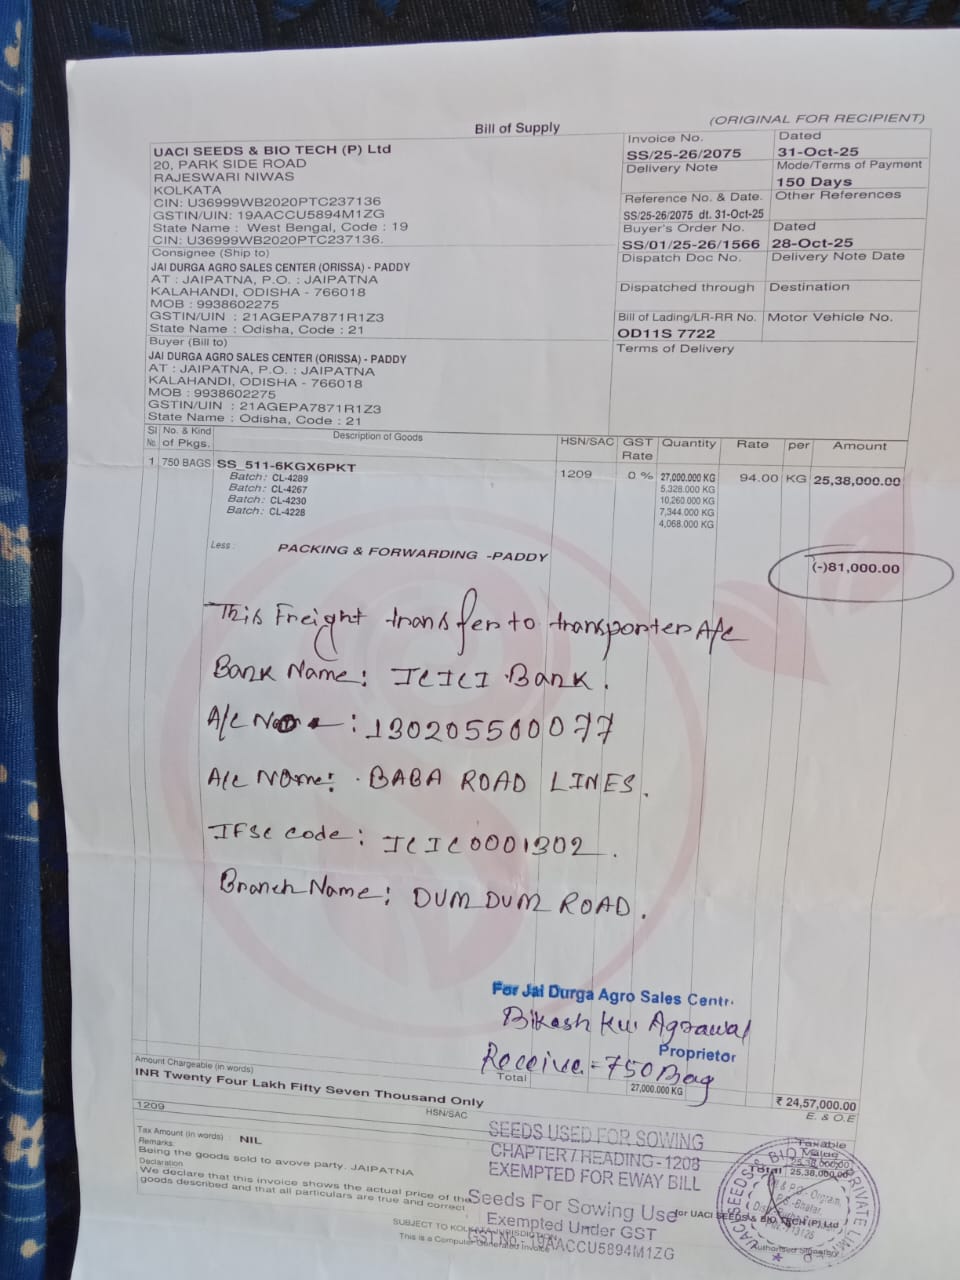 (ORIGINAL FOR RECIPIENT)
Bill of Supply
UACI SEEDS & BIO TECH (P) Ltd
20, PARK SIDE ROAD
RAJESWARI NIWAS
KOLKATA
CIN: U36999WB2020PTC237136
GSTIN/UIN: 19AACCU5894M1ZG
State Name : West Bengal, Code : 19
CIN: U36999WB2020PTC237136.
Invoice No.
SS/25-26/2075
Dated
31-Oct-25
Delivery Note
Mode/Terms of Payment
150 Days
Reference No. & Date.
SS/25-26/2075 dt. 31-Oct-25
Other References
Buyer's Order No.
SS/01/25-26/1566
Dated
28-Oct-25
Dispatch Doc No.
Delivery Note Date
Dispatched through
Destination
Bill of Lading/LR-RR No.
OD11S 7722
Motor Vehicle No.
Terms of Delivery
Consignee (Ship to)
JAI DURGA AGRO SALES CENTER (ORISSA) - PADDY
AT : JAIPATNA, P.O. : JAIPATNA
KALAHANDI, ODISHA - 766018
MOB : 9938602275
GSTIN/UIN : 21AGEPA7871R1Z3
State Name : Odisha, Code : 21
Buyer (Bill to)
JAI DURGA AGRO SALES CENTER (ORISSA) - PADDY
AT : JAIPATNA, P.O. : JAIPATNA
KALAHANDI, ODISHA - 766018
MOB : 9938602275
GSTIN/UIN : 21AGEPA7871R1Z3
State Name : Odisha, Code : 21
Sl No. No. & Kind of Pkgs. Description of Goods HSN/SAC GST Rate Quantity Rate per Amount
1 750 BAGS SS_511-6KGX6PKT 1209 0 % 27,000.000 KG 94.00 KG 25,38,000.00
Batch: CL-4289 5,328.000 KG
Batch: CL-4267 10,260.000 KG
Batch: CL-4230 7,344.000 KG
Batch: CL-4228 4,068.000 KG
Less : PACKING & FORWARDING -PADDY (-)81,000.00
This Freight transfer to transporter A/c
Bank Name: ICICI Bank.
A/c No : 130205500077
A/c Name: BABA ROAD LINES.
IFSC code: ICIC0001302.
Branch Name: DUM DUM ROAD.
For Jai Durga Agro Sales Centr.
Bikash Ku. Agrawal
Proprietor
Receive - 750 Bag
Total 27,000.000 KG ₹ 24,57,000.00
Amount Chargeable (in words)
E. & O.E
INR Twenty Four Lakh Fifty Seven Thousand Only
HSN/SAC Taxable Value
1209 25,38,000.00
Total 25,38,000.00
Tax Amount (in words) : NIL
Remarks:
Being the goods sold to avove party. JAIPATNA
Declaration
We declare that this invoice shows the actual price of the
goods described and that all particulars are true and correct.
SEEDS USED FOR SOWING
CHAPTER / HEADING - 1208
EXEMPTED FOR EWAY BILL
Seeds For Sowing Use
Exempted Under GST
GST No.- 19AACCU5894M1ZG
for UACI SEEDS & BIO TECH (P) Ltd
Authorised Signatory
SUBJECT TO KOLKATA JURISDICTION
This is a Computer Generated Invoice